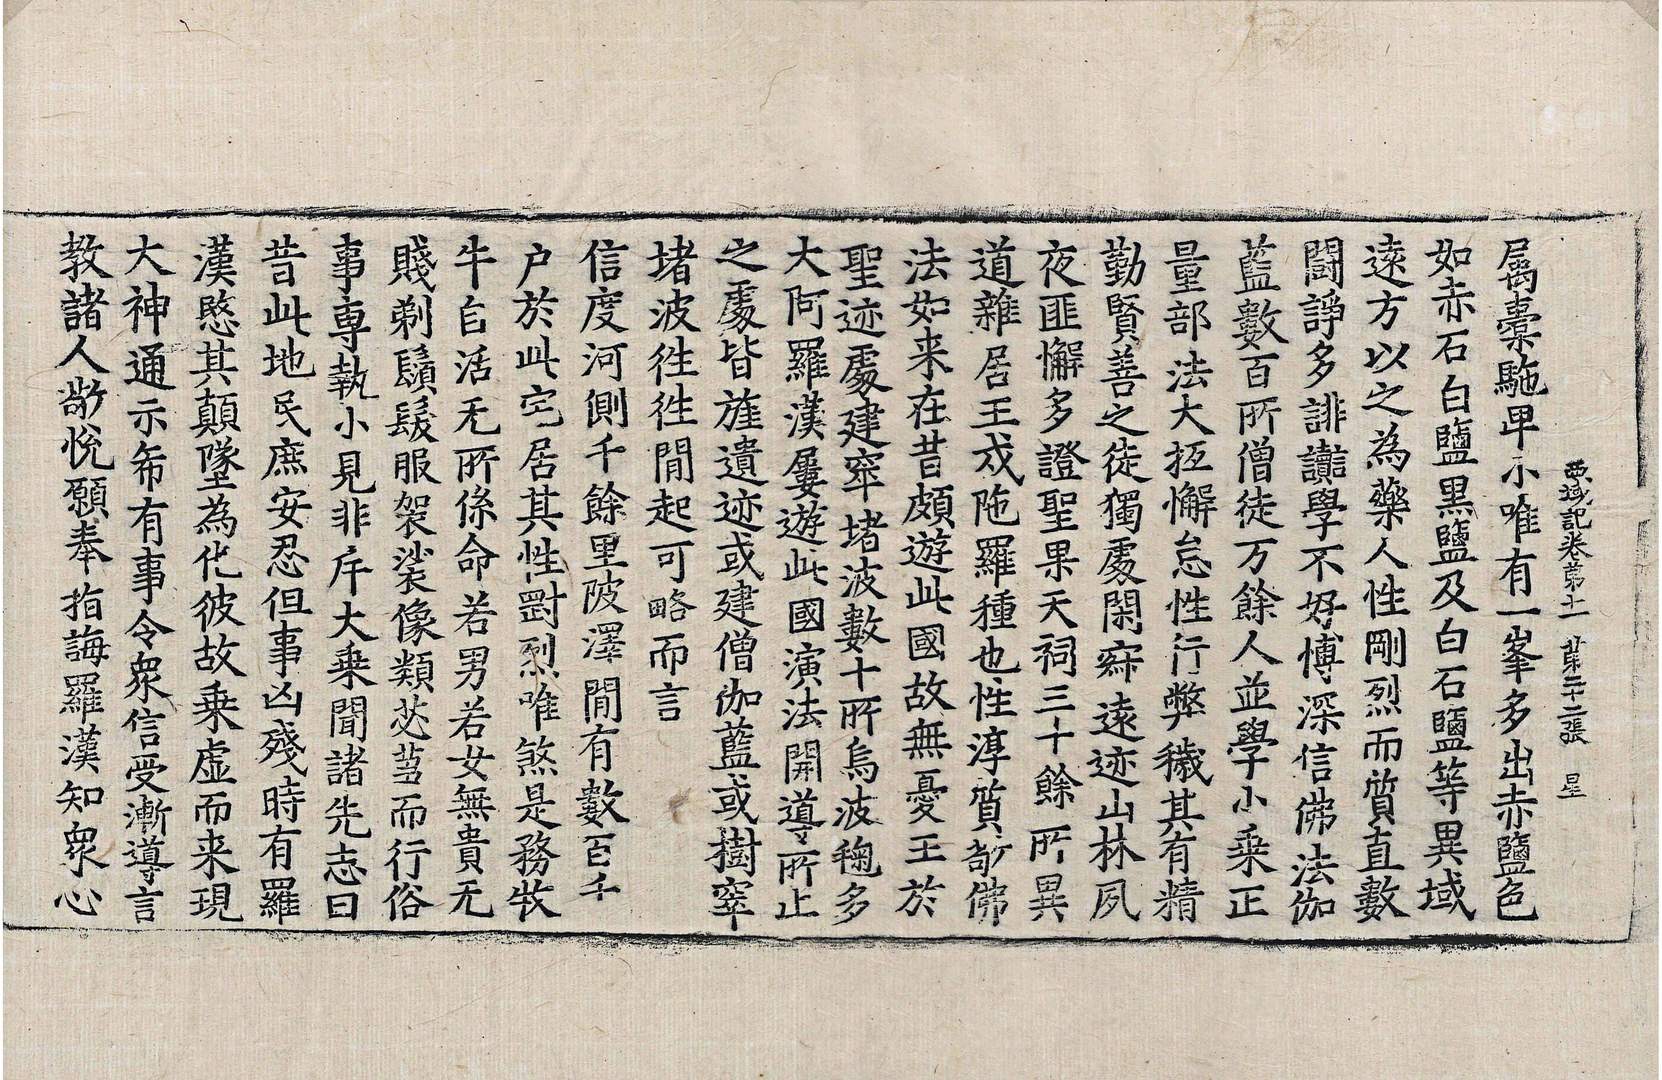 西域記卷第十一 第二十二張 星
属橐駞卑小唯有一峯多出赤鹽色
如赤石白鹽黑鹽及白石鹽等異域
遠方以之為藥人性剛烈而質直數
鬪諍多誹讟學不好博深信佛法伽
藍數百所僧徒万餘人並學小乗正
量部法大抵懈怠性行弊穢其有精
勤賢善之徒獨處閑寂遠迹山林夙
夜匪懈多證聖果天祠三十餘所異
道雜居王戍陁羅種也性淳質敬佛
法如来在昔頗遊此國故無憂王於
聖迹處建窣堵波數十所烏波毱多
大阿羅漢屢遊此國演法開導所止
之處皆旌遺迹或建僧伽藍或樹窣
堵波徃徃閒起可略而言
信度河側千餘里陂澤閒有數百千
户於此宅居其性剛烈唯煞是務牧
牛自活无所係命若男若女無貴无
賤剃鬚髮服袈裟像類苾蒭而行俗
事専執小見非斥大乗聞諸先志曰
昔此地民庶安忍但事凶殘時有羅
漢愍其顛墜為化彼故乗虚而来現
大神通示希有事令衆信受漸導言
教諸人敬悅願奉指誨羅漢知衆心